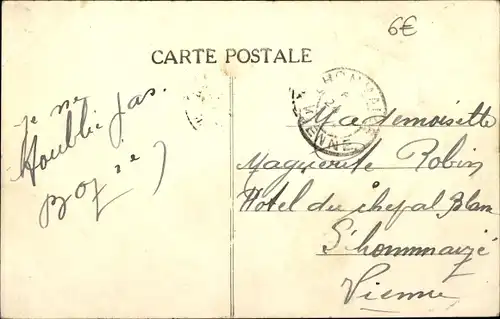 6€
CARTE POSTALE
je ne
t'oublie pas.
HOMMAIZÉ
VIENNE
Mademoiselle
Maguerite Robin
Hotel du cheval Blanc
L'hommaizé
Vienne